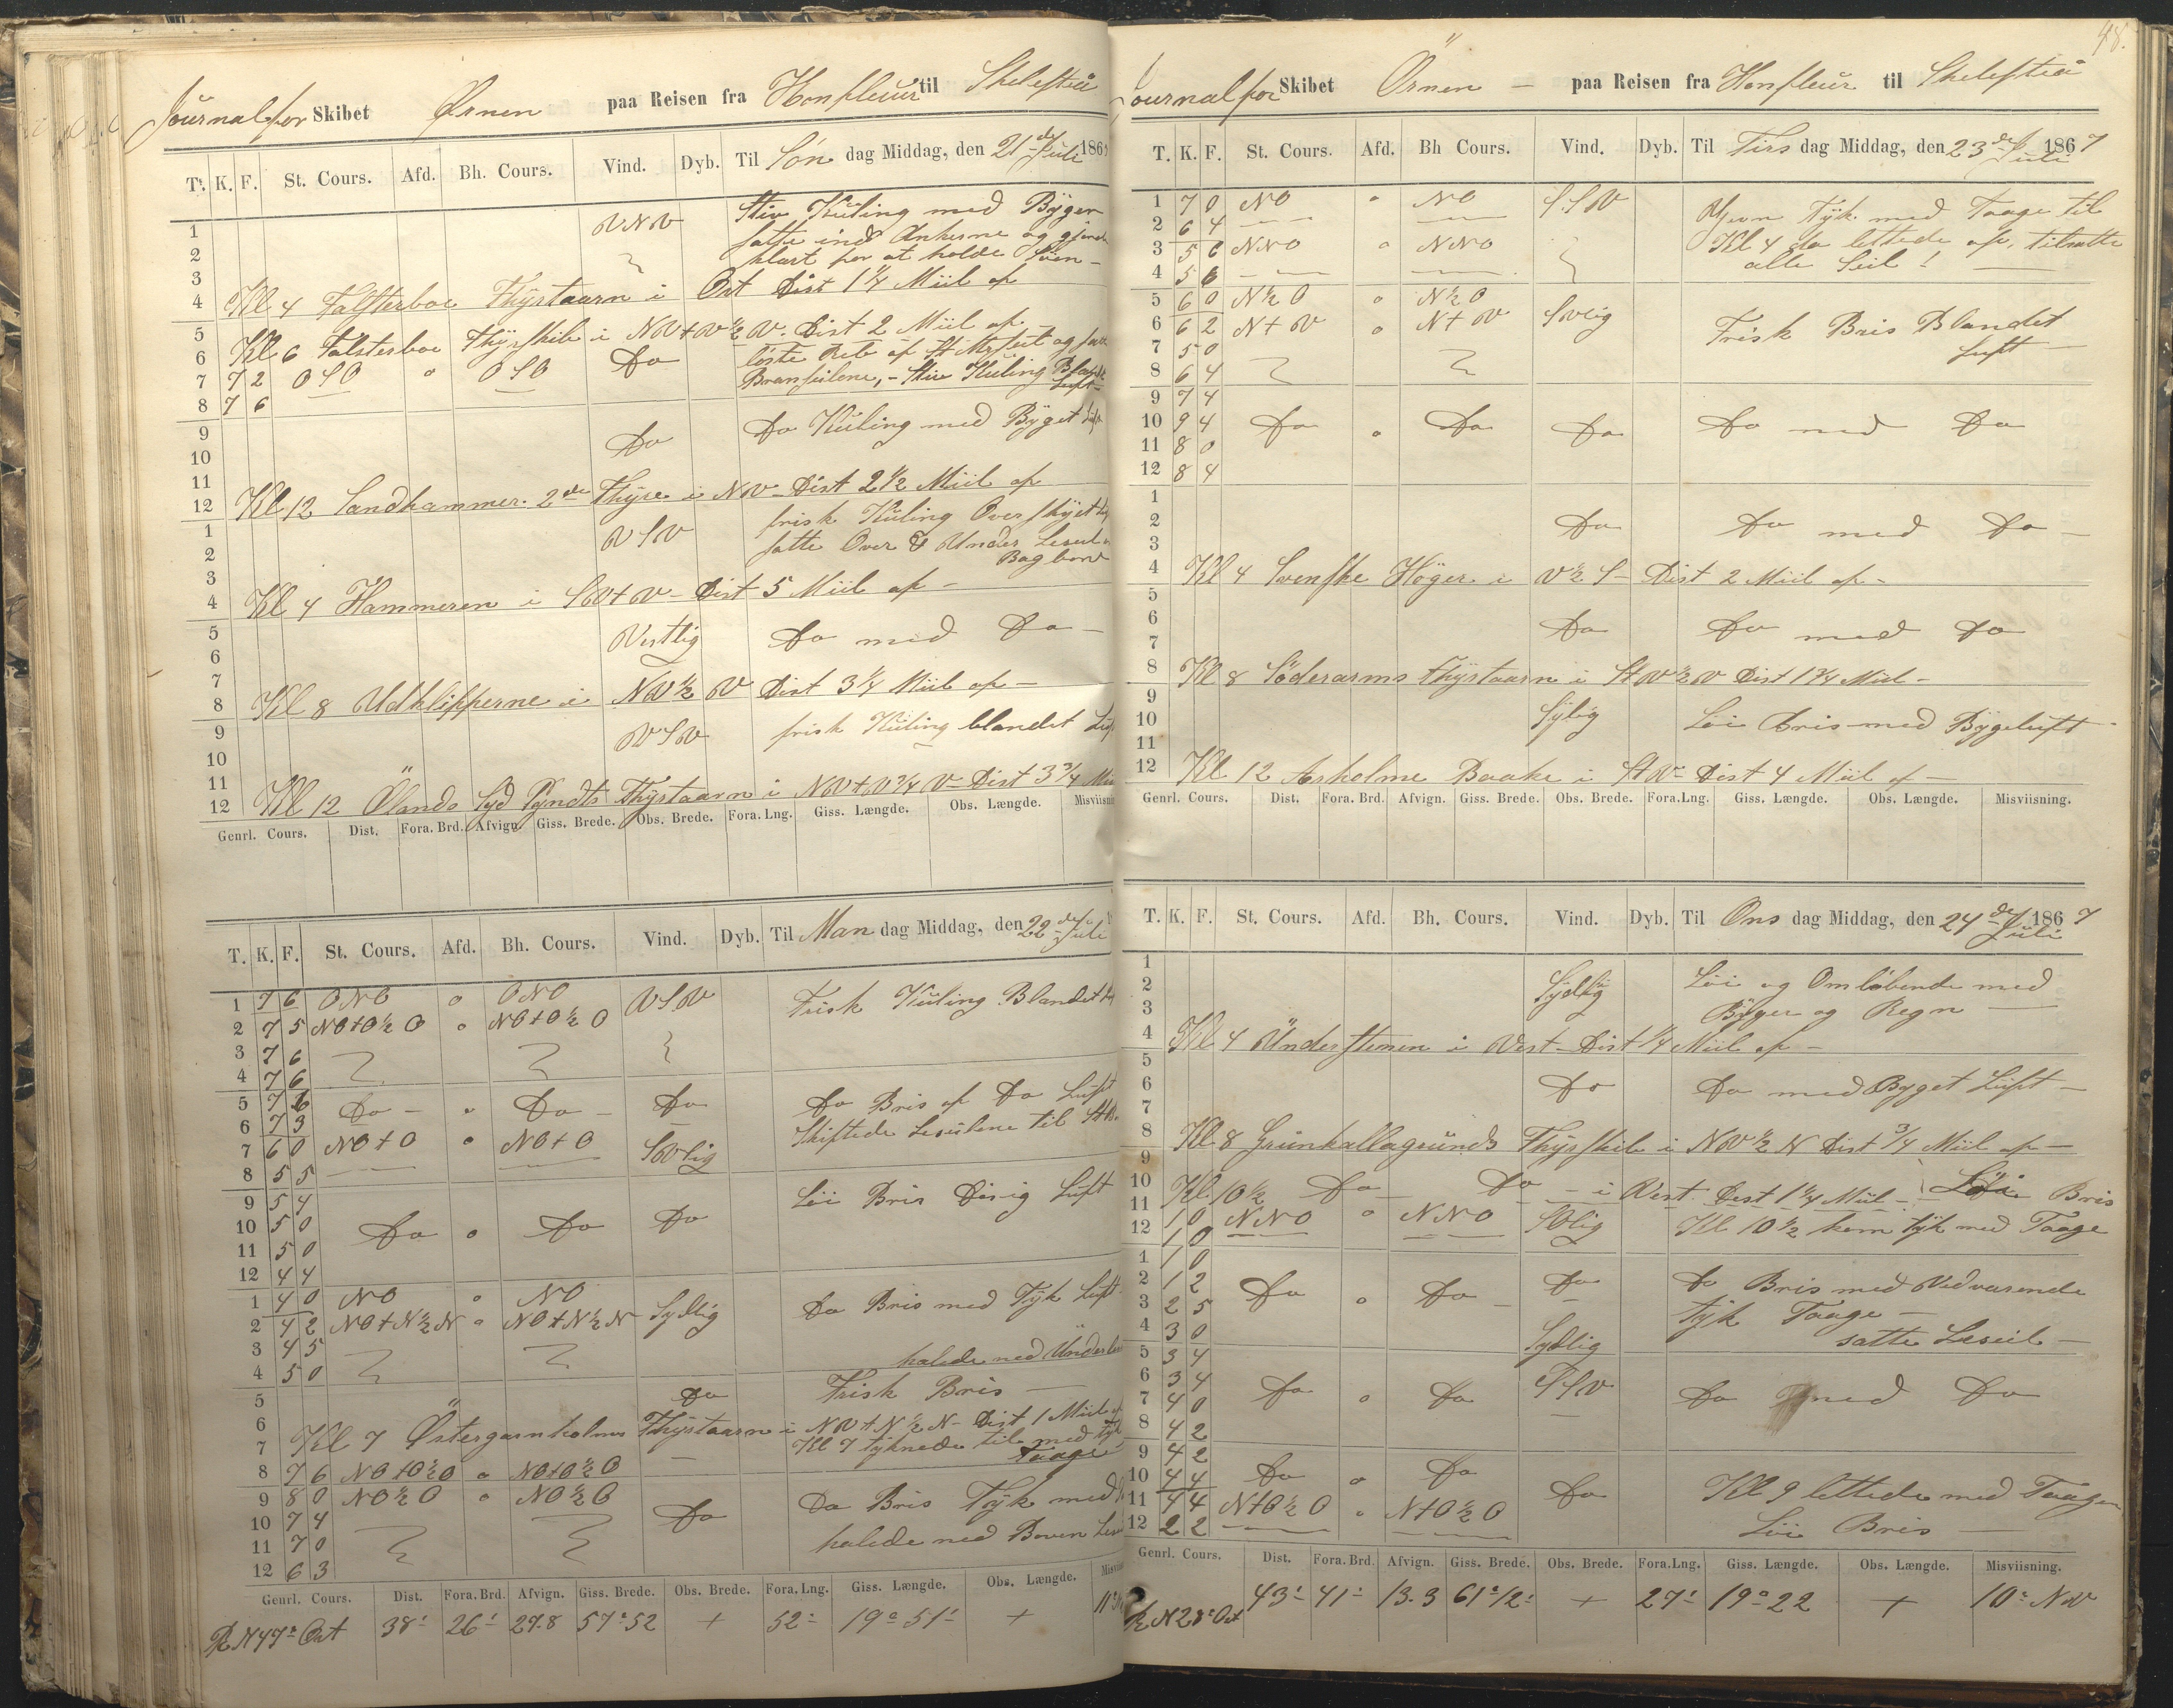 Journal for Skibet Ørnen paa Reisen fra Honfleur til Skelefteå
T. K. F. St. Cours. Afd. Bh. Cours. Vind. Dyb. Til Søn dag Middag, den 21de Juli 186
1 VNV Stiv Kuling med Byger
2 satte ind Ankerne og gjorde
3 klart for at holde Søen –
4 Kl 4 Falsterboe Fhyrtaarn i Ost Dist 1 1/4 Miil af
5
6 Kl 6 Falsterboe Fhyrskib i NV+V 1/2 V. Dist 2 Miil af
7 7 2 OSO o OSO Do løste Reb af St Mrsseil og
8 7 6 Bramseilene, – Stiv Kuling Bl Luft –
9
10 Do Do Kuling med Byget Luft
11
12 Kl 12 Sandhammer. 2de Fhyre i NV Dist 2 1/2 Miil af
1 VSV frisk Kuling Overskyet
2 satte Over & Under Leseil
3 Bagbord
4 Kl 4 Hammeren i SV+V – Dist 5 Miil af –
5
6 Vestlig Do med Do –
7
8 Kl 8 Udklipperne i NV 1/2 V Dist 3 1/4 Miil af –
9 VSV frisk Kuling blandet
10
11
12 Kl 12 Ølands Syd Pyndts Fhyrtaarn i NV+V 3/4 V – Dist 3 3/4
Genrl. Cours. Dist. Fora. Brd. Afvign. Giss. Brede. Obs. Brede. Fora. Lng. Giss. Længde. Obs. Længde. Misviisning
T. K. F. St. Cours. Afd. Bh. Cours. Vind. Dyb. Til Man dag Middag, den 22de Juli
1 7 6 ONO o ONO VSV Frisk Kuling Blandet
2 7 5 NO+O 1/2 O o NO+O 1/2 O
3 7 6
4 7 6
5 7 6 Do – o Do – Do Do Bris af Do Luft
6 7 3 Skiftede Leseilene til StB.
7 6 0 NO+O o NO+O SVlig
8 5 5
9 5 4 Løi Bris Disig Luft
10 5 0 Do o Do Do
11 5 0
12 4 4
1 4 0 NO o NO Sydlig Do Bris med Tyk Luft
2 4 2 NO+N 1/2 N o NO+N 1/2 N
3 4 5
4 5 0 halede ned Under
5 Do Frisk Bris –
6
7 Kl 7 Östergarnholms Fhyrtaarn i NV+N 1/2 N – Dist 1 Miil
Kl 7 tyknede til med tyk
8 7 6 NO+O 1/2 O o NO+O 1/2 O – Taage
9 8 0 NO 1/2 O o NO 1/2 O Do Do Bris Tyk med
10 7 4 halede ned Boven
11 7 0
12 6 3
Genrl. Cours. Dist. Fora. Brd. Afvign. Giss. Brede. Obs. Brede. Fora. Lng. Giss. Længde. Obs. Længde.
R N 47° Ost 38' 26' 27.8 57° 52 + 52' 19° 51' +
48.
Journal for Skibet Örnen – paa Reisen fra Honfleur til Skelefteå
T. K. F. St. Cours. Afd. Bh Cours. Vind. Dyb. Til Tirs dag Middag, den 23de Juli 1867
1 7 0 NO o NO SSV Gjevn Tyk. med Taage til
2 6 4 Kl 4 da lettede af, tilsatte
3 5 6 NNO o NNO alle Seil! –
4 5 6
5 6 0 N 1/2 O o N 1/2 O
6 6 2 N+V o N+V SVlig Frisk Bris Blandet
7 5 0 Luft –
8 6 4
9 7 4
10 9 4 Do o Do Do Do med Do
11 8 0
12 8 4
1
2 Do Do med Do –
3
4 Kl 4 Svenske Høger i V 1/2 S – Dist 2 Miil af –
5
6 Do Do med Do
7
8 Kl 8 Söderarms Fhyrtaarn i StV 1/2 V Dist 1 3/4 Miil –
9
10 Sylig Løi Bris med Bygeluft
11
12 Kl 12 Arholme Baake i StV – Dist 4 Miil af –
Genrl. Cours. Dist. Fora. Brd. Afvign. Giss. Brede. Obs. Brede. Fora.Lng. Giss. Længde. Obs. Længde. Misviisning.
T. K. F. St. Cours. Afd. Bh. Cours. Vind. Dyb. Til Ons dag Middag, den 24de Juli 1867
1
2 Sydlig Løi og Omløbende med
3 Byger og Regn –
4 Kl 4 Understenen i Vest – Dist 1/4 Miil af –
5
6 Do Do med Byget Luft –
7
8 Kl 8 Grunkallagrunds Fhyrskib i NV 1/2 N Dist 3/4 Miil af –
9
10 Kl 10 1/2 Do Do – i Vest Dist 1 1/4 Miil – Løi Bris
11 1 0 NNO o NNO SOlig Kl 10 1/2 kom tyk med Taage
12 1 0
1 1 0
2 1 2 Do o Do – Do Do Bris med Vedvarende
3 2 5 tyk Taage –
4 3 0 Sydlig satte Leseil –
5 3 4
6 3 4 Do o Do SSV Do med Do
7 4 0
8 4 2
9 4 2
10 4 4 Do o Do Do Kl 9 lettede med Taagen
11 4 4 N+O 1/2 O o N+O 1/2 O Løi Bris –
12 2 2
Genrl. Cours. Dist. Fora. Brd. Afvign. Giss. Brede. Obs. Brede. Fora.Lng. Giss. Længde. Obs. Længde. Misviisning.
R N 28° Ost 43' 41' 13.3 61° 12' + 27' 19° 22 + 10° NV